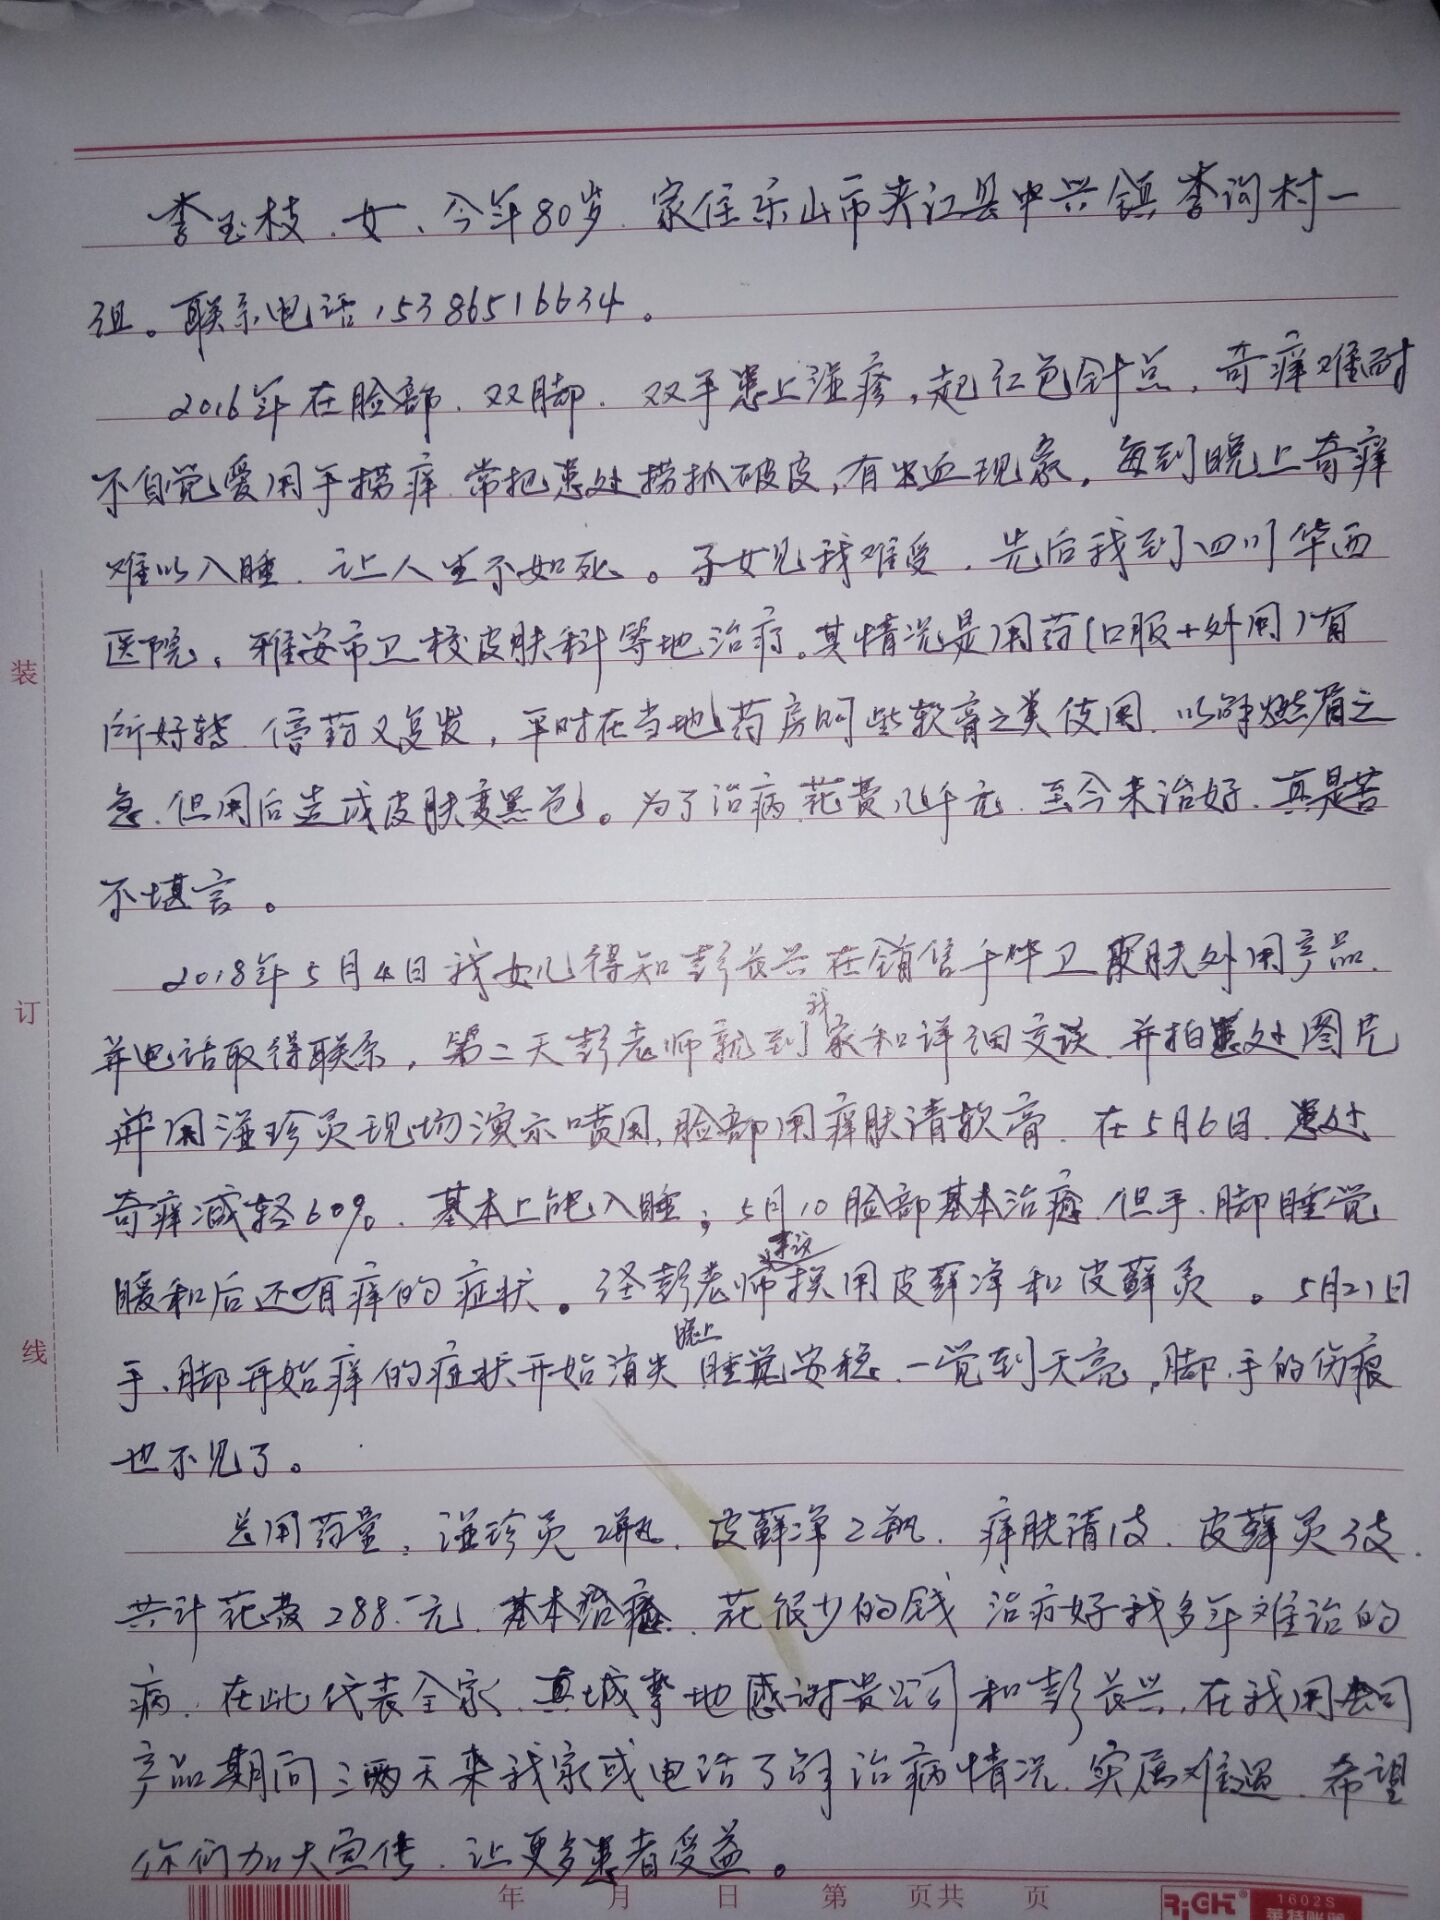 李玉枝、女、今年80岁、家住乐山市夹江县中兴镇李沟村一
组。联系电话15386516634。
2016年在脸部、双脚、双手患上湿疹,起红色针点,奇痒难耐
不自觉爱用手捞痒、常把患处捞抓破皮,有出血现象,每到晚上奇痒
难以入睡、让人生不如死。子女见我难受、先后我到四川华西
医院,雅安市卫校皮肤科等地治疗。其情况是用药(口服+外用)有
所好转、停药又复发,平时在当地药房购些软膏之类使用、以解燃眉之
急、但用后造成皮肤变黑色。为了治病花费几千元、至今未治好、真是苦
不堪言。
2018年5月4日我女儿得知彭长兴在销售千烨卫皮肤外用产品、
并电话取得联系,第二天彭老师就到我家和详细交谈、并拍患处图片
并用湿珍灵现场演示喷用,脸部用痒肤清软膏、在5月6日、患处
奇痒减轻60%、基本上能入睡;5月10脸部基本治癒、但手、脚睡觉
暖和后还有痒的症状。经彭老师建议换用皮藓净和皮藓灵。5月21日
手、脚开始痒的症状开始消失晚上睡觉安稳、一觉到天亮,脚、手的伤痕
也不见了。
总用药量:湿珍灵2瓶、皮藓净2瓶、痒肤清1支、皮藓灵3支、
共计花费288.-元、基本治癒、花很少的钱 治疗好我多年难治的
病、在此代表全家、真城挚地感谢贵公司和彭长兴、在我用公司
产品期间三两天来我家或电话了解治病情况、实属难遇、希望
你们加大宣传、让更多患者受益。
装
订
线
年 月 日 第 页共 页
RiGHT® 1602S
莱特账簿